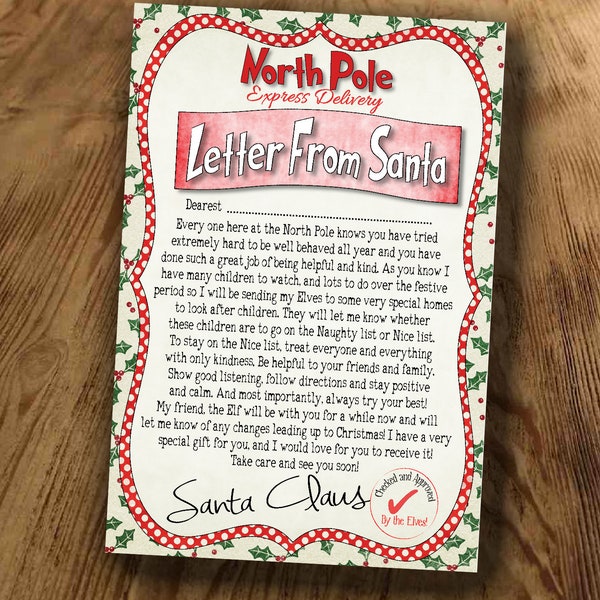 North Pole
Express Delivery
Letter From Santa
Dearest ........................................................
Every one here at the North Pole knows you have tried
extremely hard to be well behaved all year and you have
done such a great job of being helpful and kind. As you know I
have many children to watch, and lots to do over the festive
period so I will be sending my Elves to some very special homes
to look after children. They will let me know whether
these children are to go on the Naughty list or Nice list.
To stay on the Nice list, treat everyone and everything
with only kindness. Be helpful to your friends and family.
Show good listening, follow directions and stay positive
and calm. And most importantly, always try your best!
My friend, the Elf will be with you for a while now and will
let me know of any changes leading up to Christmas! I have a very
special gift for you, and I would love for you to receive it!
Take care and see you soon!
Santa Claus
Checked and Approved
By the Elves!